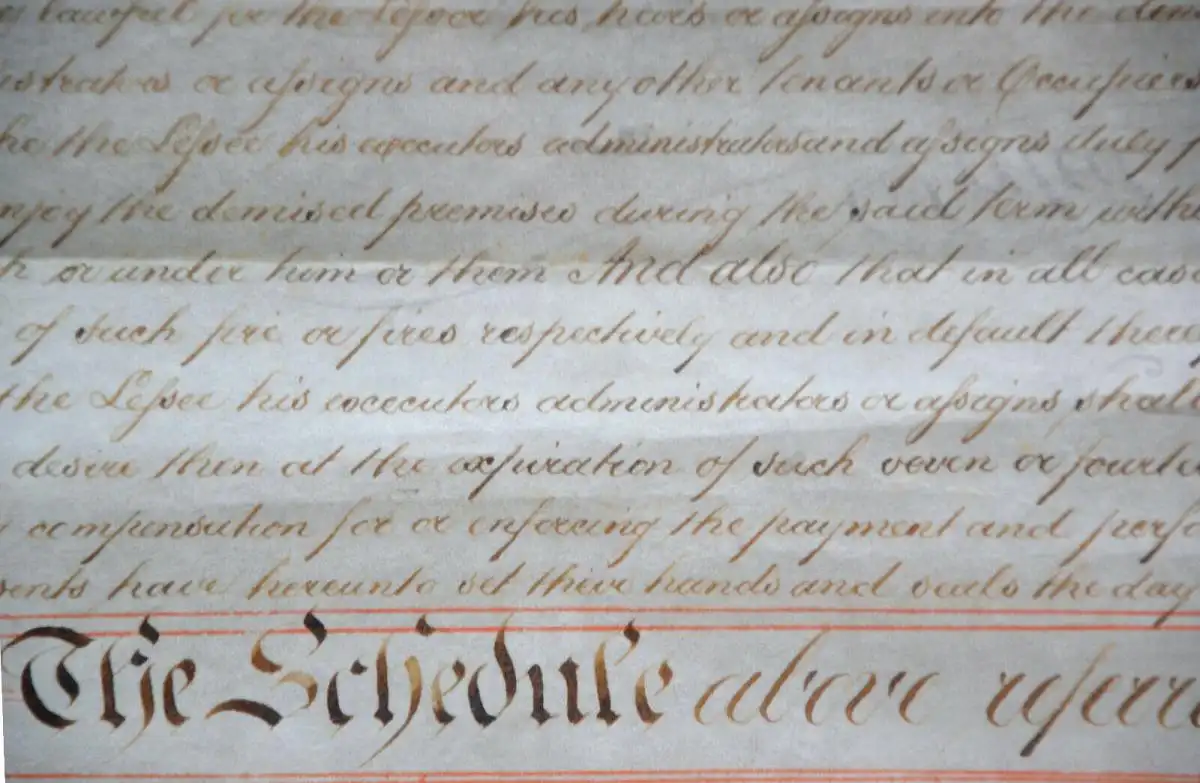 lawful for the Lessor his heirs or assigns into the dem
istrators or assigns and any other tenants or Occupiers
he the Lessee his executors administrators and assigns duly p
njoy the demised premises during the said term witho
h or under him or them And also that in all case
of such fire or fires respectively and in default there
the Lessee his executors administrators or assigns shall
desire then at the expiration of such seven or fourte
compensation for or enforcing the payment and perfo
sents have hereunto set their hands and seals the day
The Schedule above referr